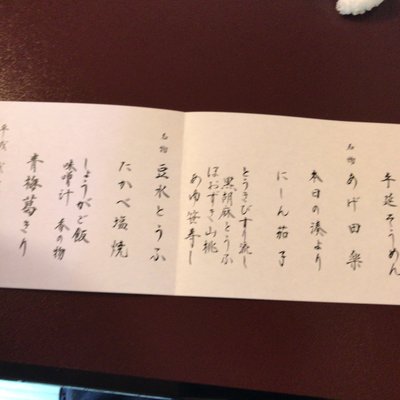 手延そうめん
名物 あげ田楽
本日の湊より
にしん茄子
とうきびすり流し
黒胡麻とうふ
ほおずき山桃
あゆ笹寿し
名物 豆水とうふ
たかべ塩焼
しょうがご飯
味噌汁 香の物
青梅葛きり
平成